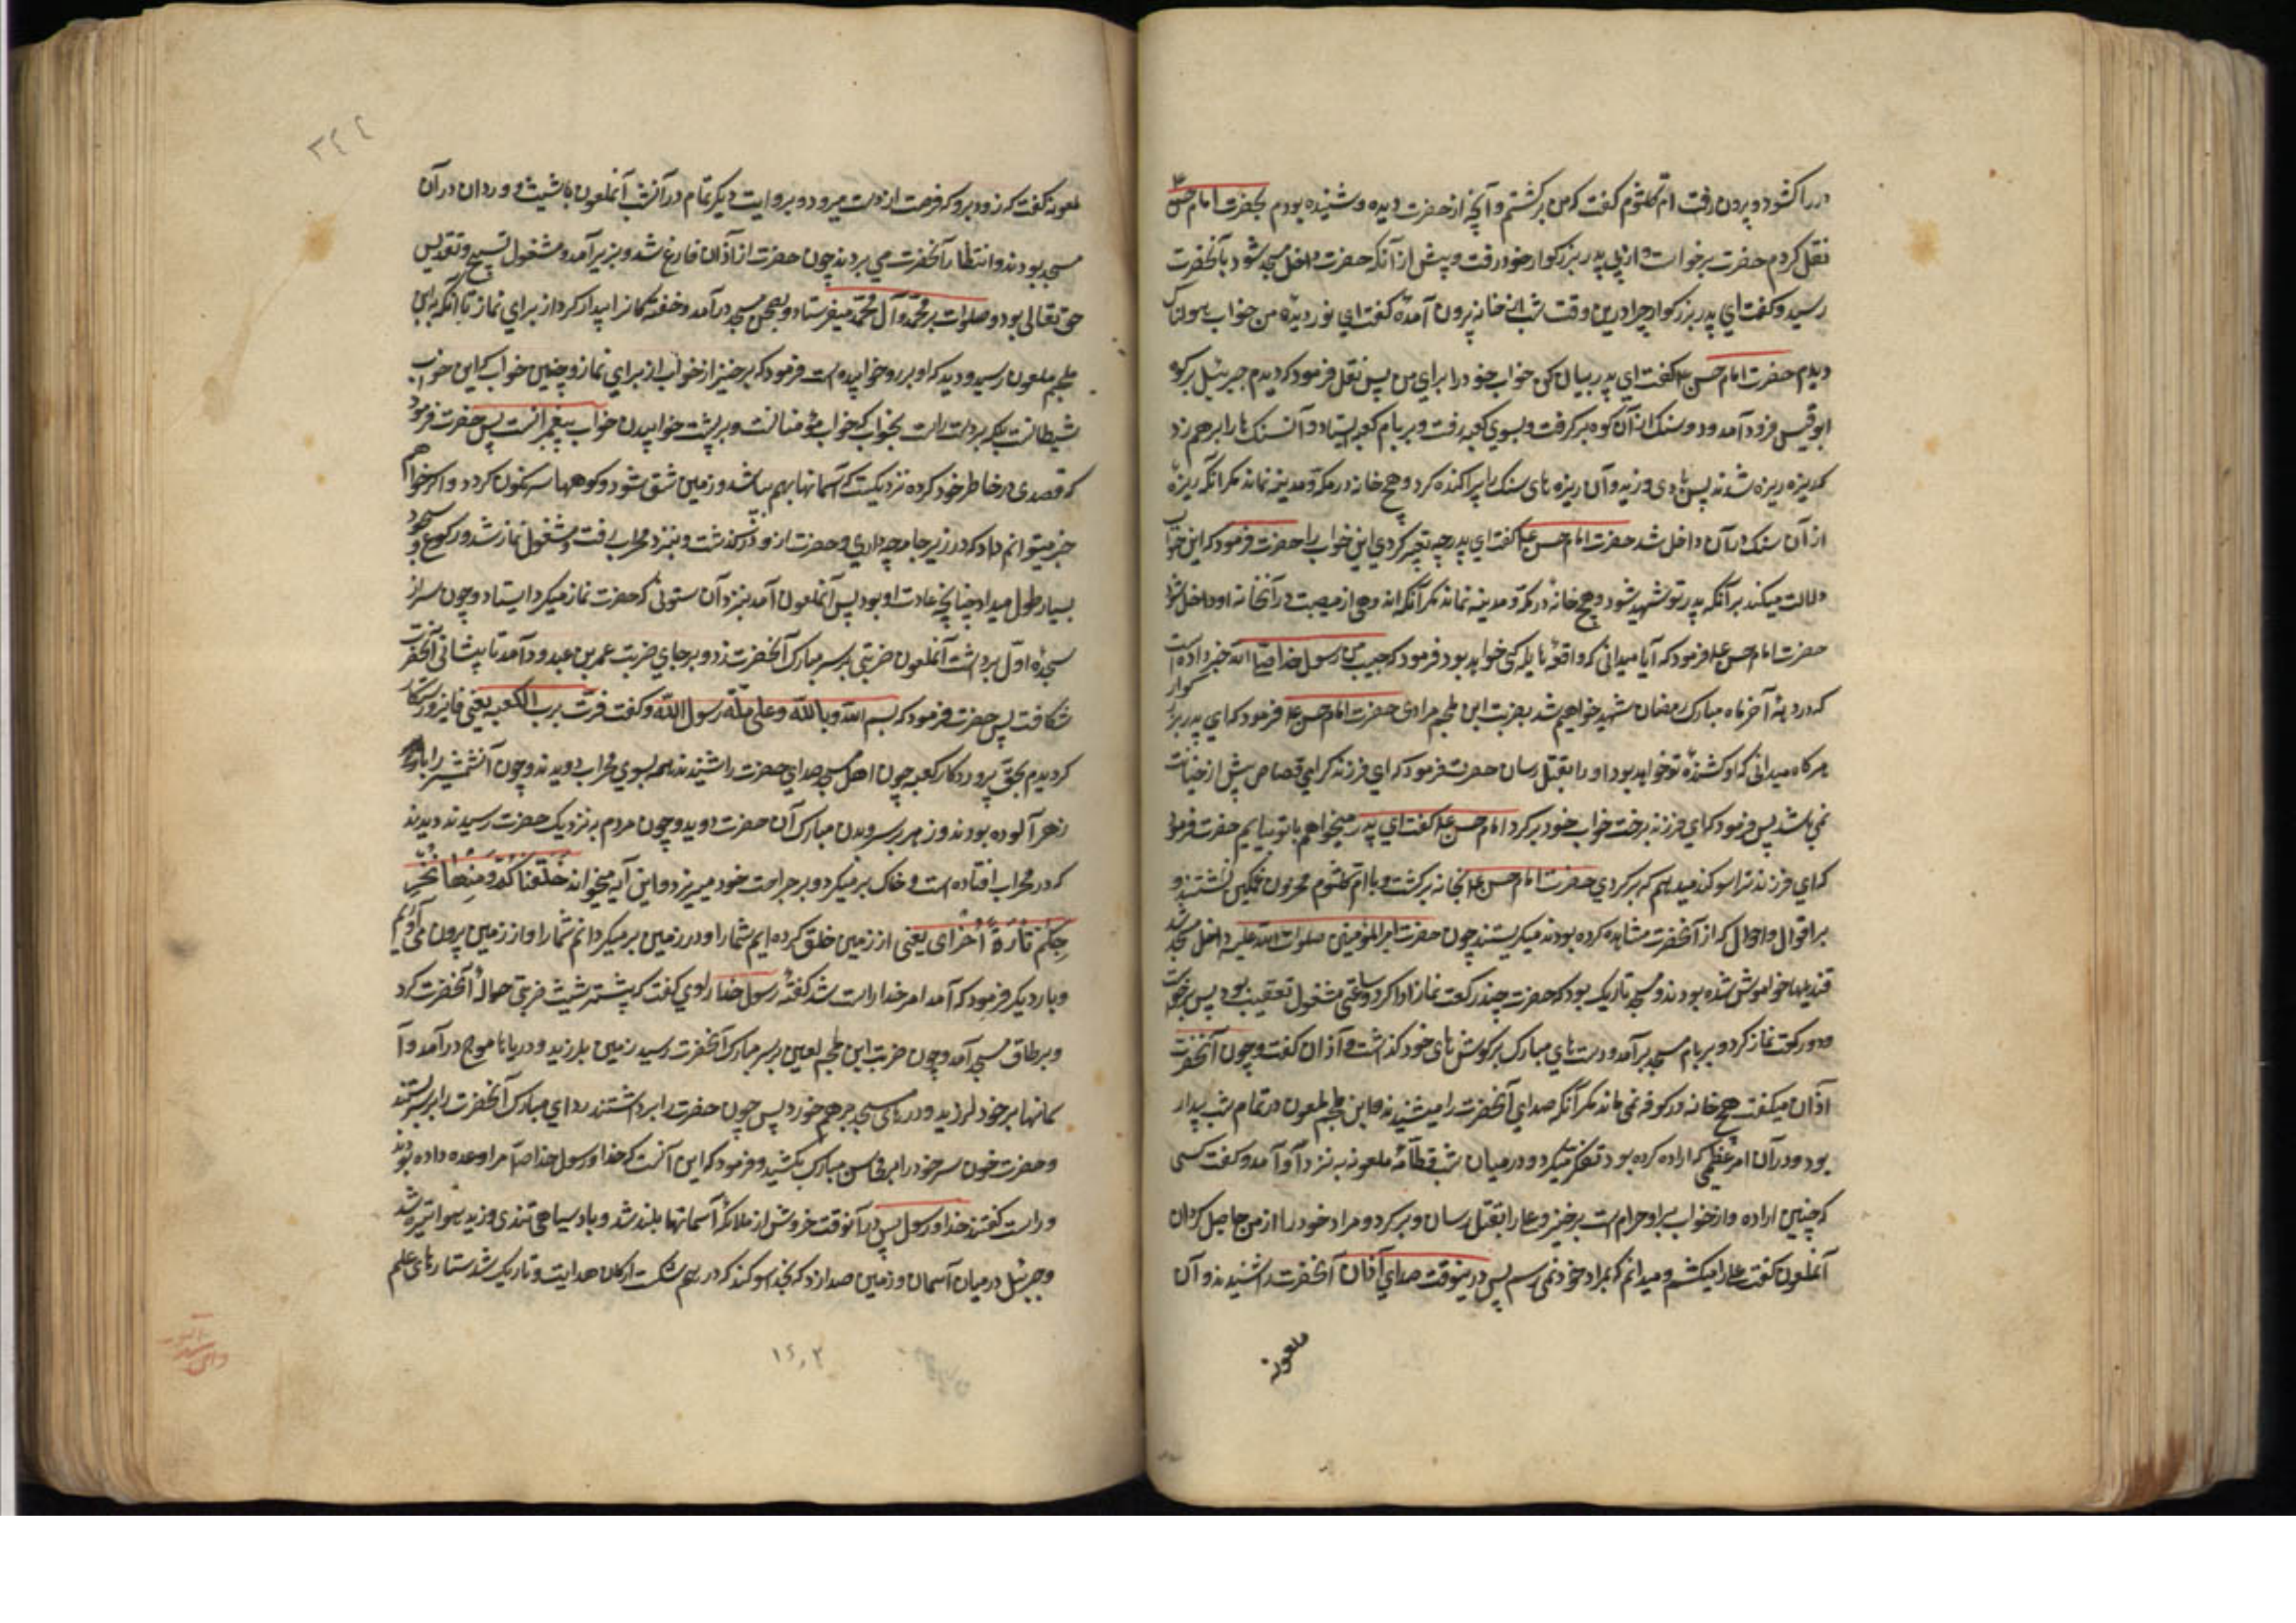 در را کشود و بیرون رفت ام کلثوم کفت که من برکشتم و آنچه از حضرت دیده و شنیده بودم بحضرت امام حسن
نقل کردم حضرت برخواست و از پی پدر بزرکوار خود رفت و پیش از آنکه حضرت داخل مسجد شود بآنحضرت
رسید و کفت ای پدر بزرکوار چرا درین وقت شب از خانه بیرون آمدهٔ کفت ای نور دیدهٔ من خواب هولناک
دیدم حضرت امام حسن ع کفت ای پدر بیان کن خواب خود را برای من پس نقل فرمود که دیدم جبرئیل بر کوه
ابوقبیس فرود آمد و دو سنک از آن کوه برکرفت و بسوی کعبه رفت و بر بام کعبه ایستاد و آن سنک ها را بر هم زد
که ریزه ریزه شدند پس بادی وزید و آن ریزه های سنک را پراکنده کرد و هیچ خانه در مکه و مدینه نماند مکر آنکه ریزهٔ
از آن سنک در آن داخل شد حضرت امام حسن ع کفت ای پدر چه تعبیر کردی این خواب را حضرت فرمود که این خواب
دلالت میکند بر آنکه پدر تو شهید شود و هیچ خانه در مکه و مدینه نماند مکر آنکه اندوهی از مصیبت در آنخانه او داخل شود
حضرت امام حسن ع فرمود که آیا میدانی که واقعهٔ هایله کی خواهد بود فرمود که حبیب من رسول خدا مرا خبر داده است
که در دههٔ آخر ماه مبارک رمضان شهید خواهم شد بضربت ابن ملجم مرادی حضرت امام حسن ع فرمود که ای پدر بزرکوار
هرکاه میدانی که او کشندهٔ تو خواهد بود او را بقتل رسان حضرت فرمود که ای فرزند کرامی قصاص پیش از جنایت
نمی باشد پس فرمود که ای فرزند برخت خواب خود برکرد امام حسن ع کفت ای پدر میخواهم با تو بیایم حضرت فرمود
که ای فرزند ترا سوکند میدهم که برکردی حضرت امام حسن ع بخانه برکشت و با ام کلثوم محزون و غمکین نشستند و
بر اقوال و احوال که از آنحضرت مشاهده کرده بودند میکریستند چون حضرت امیر المؤمنین صلوات الله علیه داخل مسجد شد
قندیلها خواموش شده بودند و مسجد تاریک بود که حضرت چند رکعت نماز ادا کرد و ساعتی مشغول تعقیب بود پس برخواست
و دو رکعت نماز کرد و بر بام مسجد بر آمد و دست های مبارک بر کوش های خود کذاشت و آذان کفت و چون آنحضرت
آذان میکفت هیچ خانه در کوفه نمی ماند مکر آنکه صدای آنحضرت را میشنیدند و ابن ملجم ملعون در تمام شب بیدار
بود و در آن امر عظمی که اراده کرده بود تفکر میکرد و در میان شب قطامهٔ ملعونه به نزد آو آمد و کفت کسی
که چنین اراده دارد خواب بر او حرام است برخیز و علی را بقتل رسان و برکرد و مراد خود را از من حاصل کردان
آنملعون کفت علی را میکشم و میدانم که بمراد خود نمی رسم پس درینوقت صدای آذان آنحضرت را شنیدند و آن
ملعونه
ملعونه کفت که زود برو که فرصت از دست میرود و بروایت دیکر تمام در آنشب آنملعون با شبیث و وردان در آن
مسجد بودند و انتظار آنحضرت می بردند چون حضرت از آذان فارغ شد و بزیر آمد و مشغول تسبیح و تقدیس
حق تعالی بود و صلوات بر محمد و آل محمد میفرستاد و بصحن مسجد در آمد و خفته کانرا بیدار کرد از برای نماز تا آنکه بابن
ملجم ملعون رسید و دید که او بر رو خوابیده است فرمود که برخیز از خواب از برای نماز و چنین خواب که این خواب
شیطانست بلکه بر دست راست بخواب که خواب مؤمنانست و بر پشت خوابیدن خواب پیغمبرانست پس حضرت فرمود
که قصدی در خاطر خود کرده نزدیکست که آسمانها بهم بپاشد و زمین شق شود و کوهها سرنکون کردد و اکر خواهم
خبر میتوانم داد که در زیر جامه چه داری و حضرت از او درکذشت و بنزد محراب رفت و مشغول نماز شد و رکوع و سجود
بسیار طول میداد چنانچه عادت او بود پس آنملعون آمد بنزد آن ستونی که حضرت نماز میکرد ایستاد و چون سر از
سجدهٔ اول برداشت آنملعون ضربتی بر سر مبارک آنحضرت زد و بر جای ضربت عمر بن عبدود آمد تا پیشانی آنحضرت
شکافت پس حضرت فرمود که بسم الله و بالله و علی ملة رسول الله و کفت فزت برب الکعبه یعنی فایز و رستکار
کردیدم بحق پروردکار کعبه چون اهل مسجد صدای حضرت را شنیدند همه بسوی محراب دویدند و چون آنشمشیر را با
زهر آلوده بودند و زهر بر سر و بدن مبارک آن حضرت دوید و چون مردم به نزدیک حضرت رسیدند دیدند
که در محراب افتاده است و خاک بر میکرد و بر جراحت خود میریزد و این آیه میخواند خلقناکم و منها نخر
جکم تارة اخرای یعنی از زمین خلق کرده ایم شما را و در زمین بر میکردانم شما را و از زمین بیرون می آوریم
و بار دیکر فرمود که آمد امر خدا راست شد کفتهٔ رسول خدا راوی کفت که پیشتر شبیث ضربتی حوالهٔ آنحضرت کرد
و بر طاق مسجد آمد و چون ضربت ابن ملجم لعین بر سر مبارک آنحضرت رسید زمین بلرزید و دریاها موج در آمد و آ
سمانها بر خود لرزید و درهای مسجد بر هم خورد پس چون حضرت را برداشتند ردای مبارک آنحضرت را بر سر بستند
و حضرت خون سر خود را بر محاسن مبارک بکشید و فرمود که این آنست که خدا و رسول خدا مرا وعده داده بودند
و راست کفتند خدا و رسول پس در آنوقت خروش از ملائکه آسمانها بلند شد و باد سیاهی تندی وزید هوا تیره شد
و جبرئیل در میان آسمان و زمین صدا زد که بخدا سوکند که درهم شکست ارکان هدایت و تاریک شد ستارهای علم